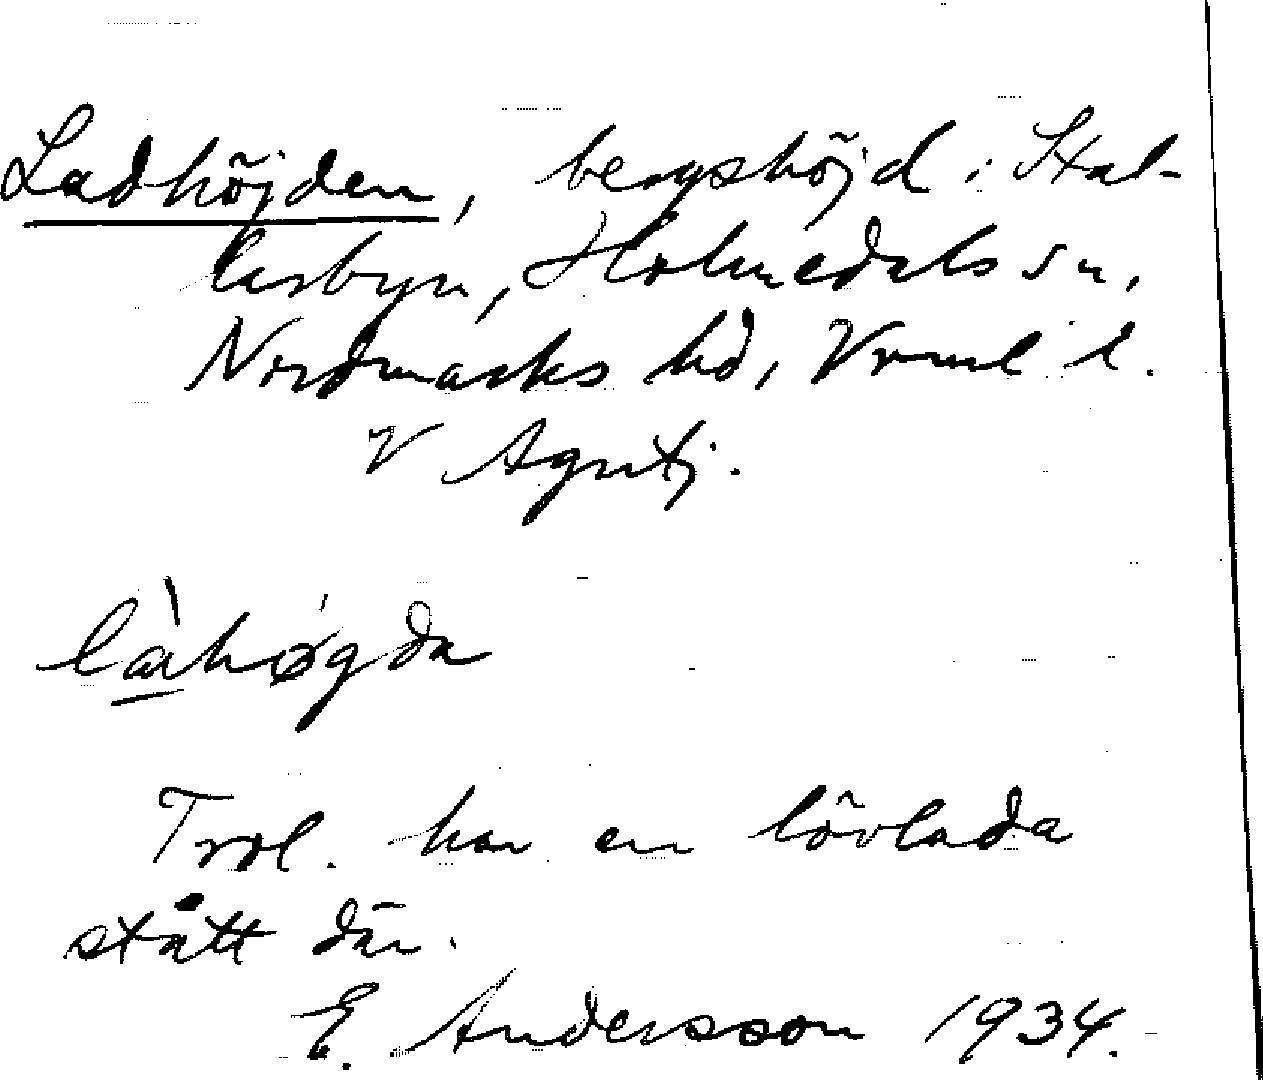 Ladhöjden, bergshöjd i Stal-
lersbyn, Holmedals sn,
Nordmarks hd, Vrml l.
V Agntj.
làrhøgda
Trol. har en lövlada
stått där.
E. Andersson 1934.